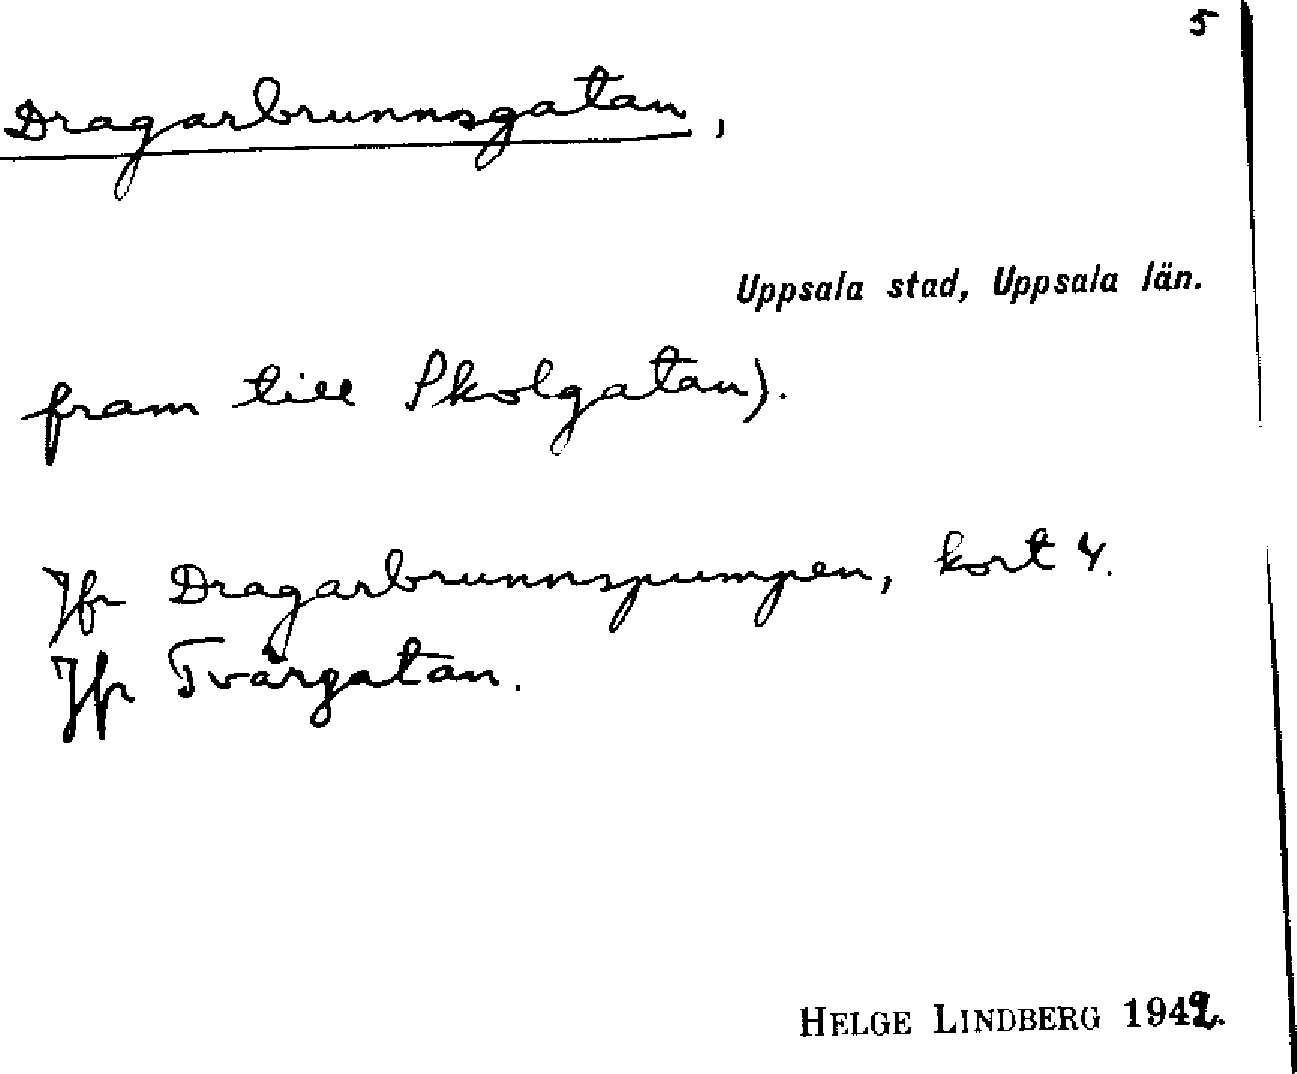 5
Dragarbrunnsgatan,
Uppsala stad, Uppsala län.
fram till Skolgatan).
Jfr Dragarbrunnspumpen, kort 4.
Jfr Tvärgatan.
HELGE LINDBERG 1942.